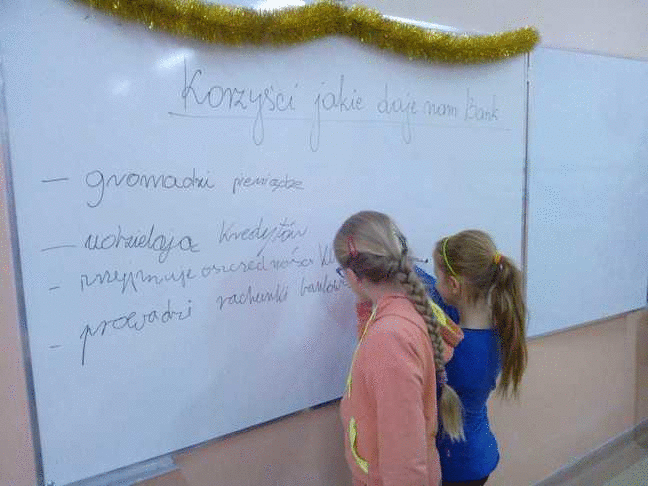 Korzyści jakie daje nam Bank
— gromadzi pieniądze
— udzielają kredytów
- przyjmuje oszczędności
- prowadzi rachunki bankowe